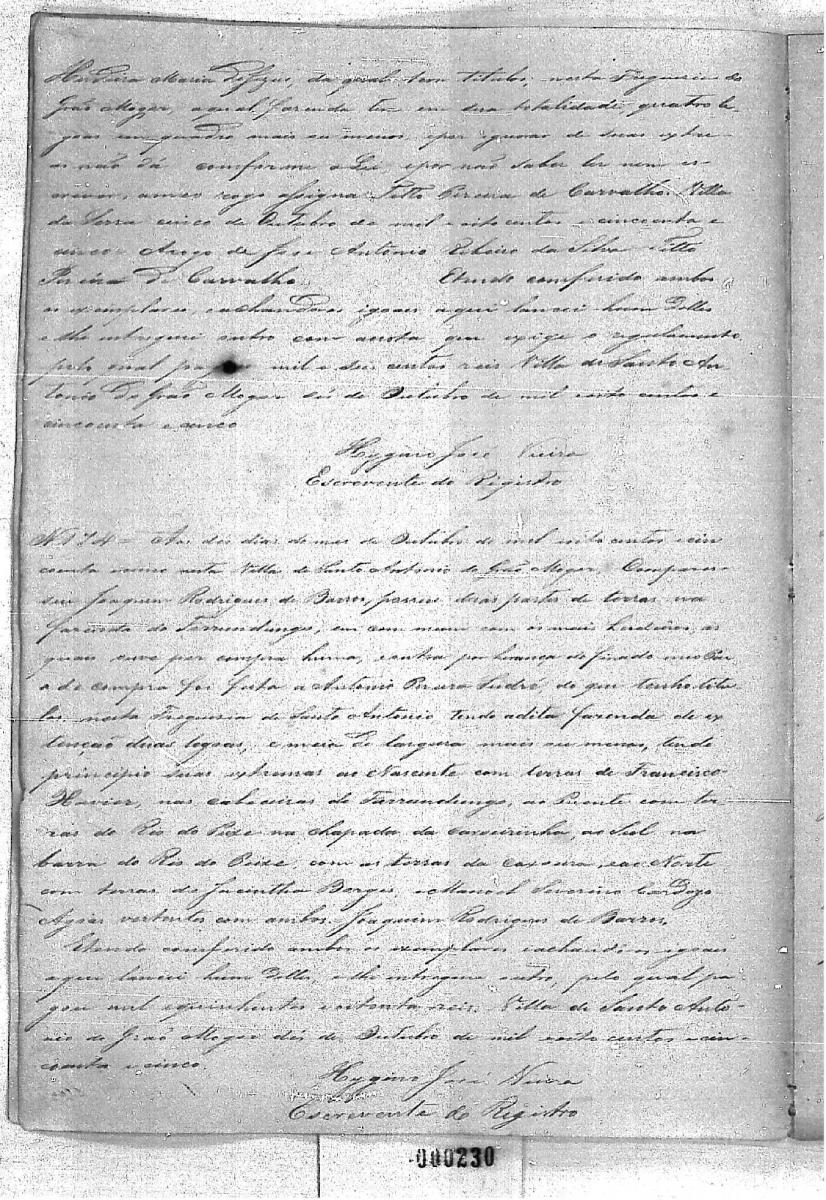 Maria de Jezus, da qual tem titulos, nesta Freguesia do
Grão Mogor, a qual fazenda tem em sua totalidade, quatro le
goas em quadro mais ou menos, e por ignorar de suas extre-
as não dá conforme a Lei, e por não saber ler nem es-
crever, a meo rogo assigna Titto Pereira de Carvalho. Villa
da Serra cinco de Outubro de mil e oito centos e cincoenta e
cinco. Arogo de José Antonio Ribeiro da Silva Titto
Pereira De Carvalho. E tendo comferido ambos
os exemplares, e achando os igoaes aqui lancei hum Delles
e lhe entreguei outro com a nota que exige o regulamento
pelo qual mil e seis centos reis Villa de Santo An-
tonio Do Grão Mogor de Outubro de mil oito centos e
cincoenta e cinco
Hygino José Vieira
Escrevente do Registro
N 174 = Aos dés dias do mes de Outubro de mil oito centos e cin
coenta e cinco nesta Villa de Santo Antonio do Grão Mogor, Compares-
seu Joaquim Rodrigues de Barros, possue duas partes de terras na
fazenda do Tarrundungo, em com mum com os mais herdeiros, as
quaes ouve por compra huma, e outra por herança do finado meo Pai
a de compra foi feita a Antonio Pereira Sudré, do que tenho titu
los nesta Freguesia de Santo Antonio tendo a dita fazenda de ex
tenção duas legoas, e meia de largura mais ou menos, tendo
principio suas extremas ao Nascente com terras de Francisco
Xavier, nas cabeceiras do Tarrundungo, ao Puente com ter-
ras do Rio do Peixe na chapada da Caveirinha, ao Sul na
barra do Rio do Peixe com as terras da Caxoeira, e ao Norte
com terras de Jacintha Borges, e Manoel Severino Cardozo
Agoas vertentes com ambos. Joaquim Rodrigues de Barros.
E tendo comferido ambos os exemplares e achando os igoaes
aqui lancei hum Delles, e lhe entreguei outro, pelo qual pa
gou mil e quinhentos e oitenta reis. Villa de Santo Anto-
nio do Grão Mogor dés de Outubro de mil e oito centos e cin-
coenta e cinco.
Hygino José Vieira
Escrevente do Registro
000230